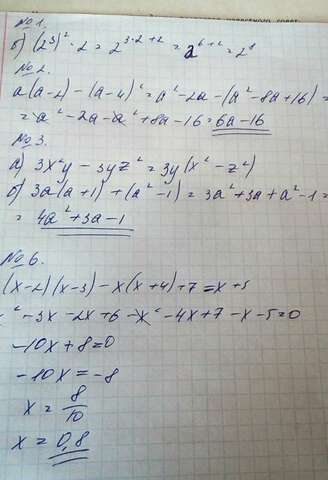 №1.
б) (2³)² · 2 = 2³·²⁺² = 2⁶⁺² = 2⁸
№2.
a(a-2) - (a-4)² = a² - 2a - (a² - 8a + 16) =
= a² - 2a - a² + 8a - 16 = 6a - 16
№3.
а) 3x²y - 3yz² = 3y(x² - z²)
б) 3a(a+1) + (a² - 1) = 3a² + 3a + a² - 1 =
= 4a² + 3a - 1
№6.
(x-2)(x-3) - x(x+4) + 7 = x + 5
x² - 3x - 2x + 6 - x² - 4x + 7 - x - 5 = 0
-10x + 8 = 0
-10x = -8
x = 8/10
x = 0,8